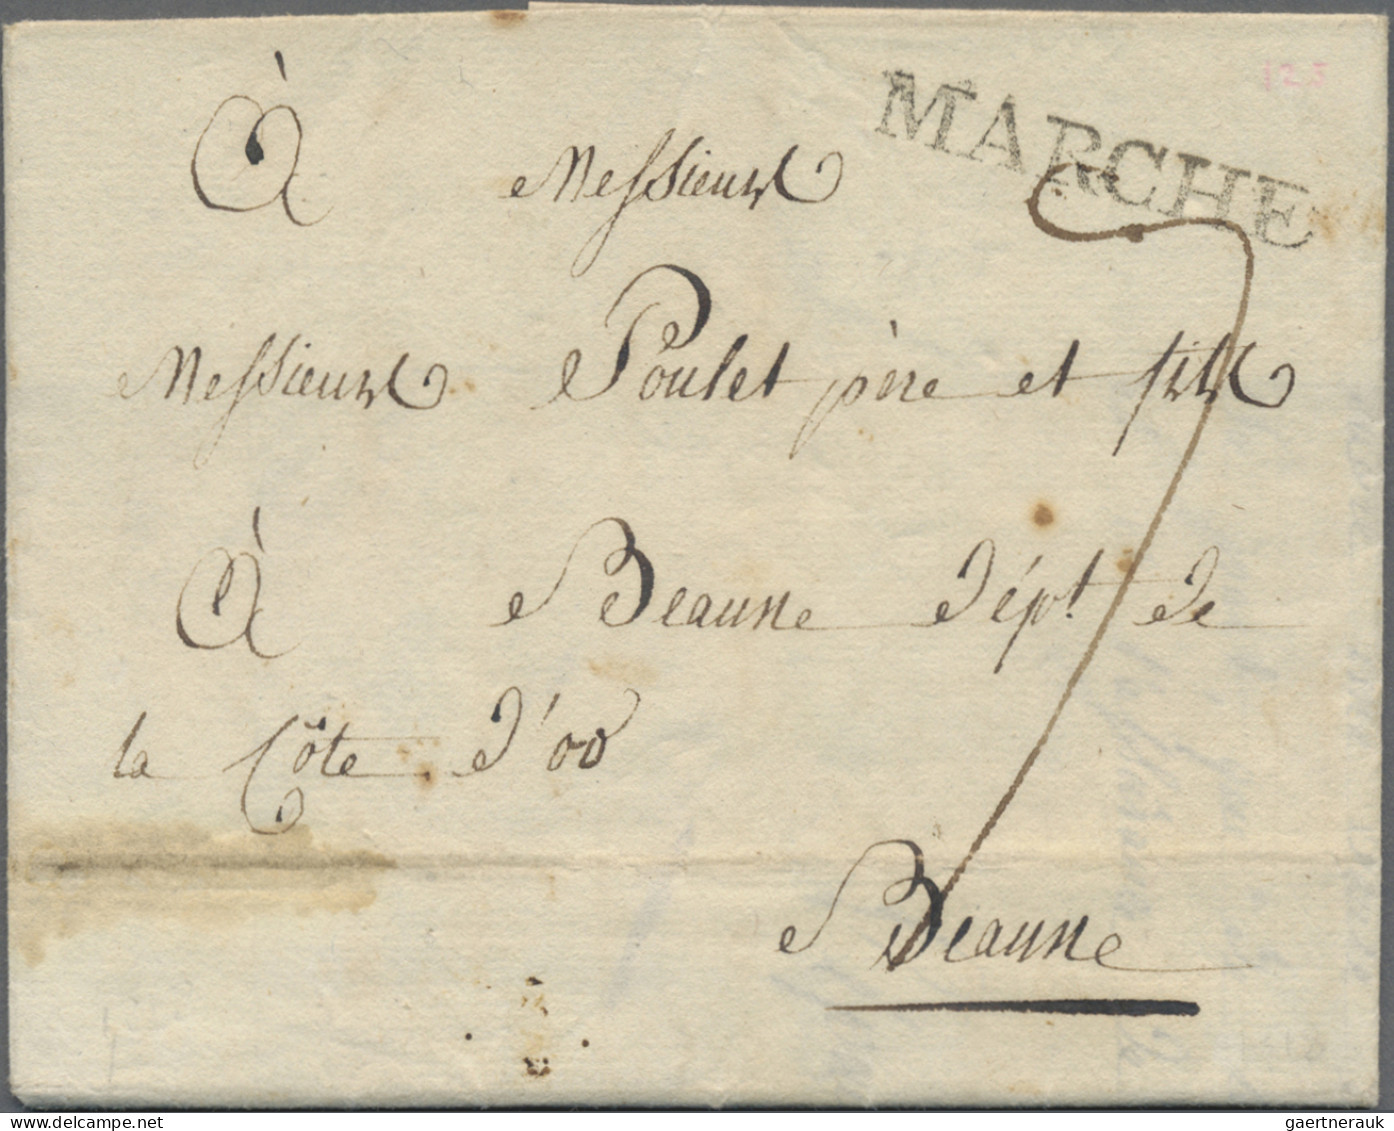 MARCHE
123
À Messieurs
7
Messieurs Poulet père et fils
À Beaune Dépt. de
la Côte d'or
Beaune
delcampe.net
gaertnerauk